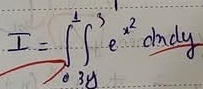 I = ∫₀¹ ∫₃ᵧ³ e^{x²} dxdy